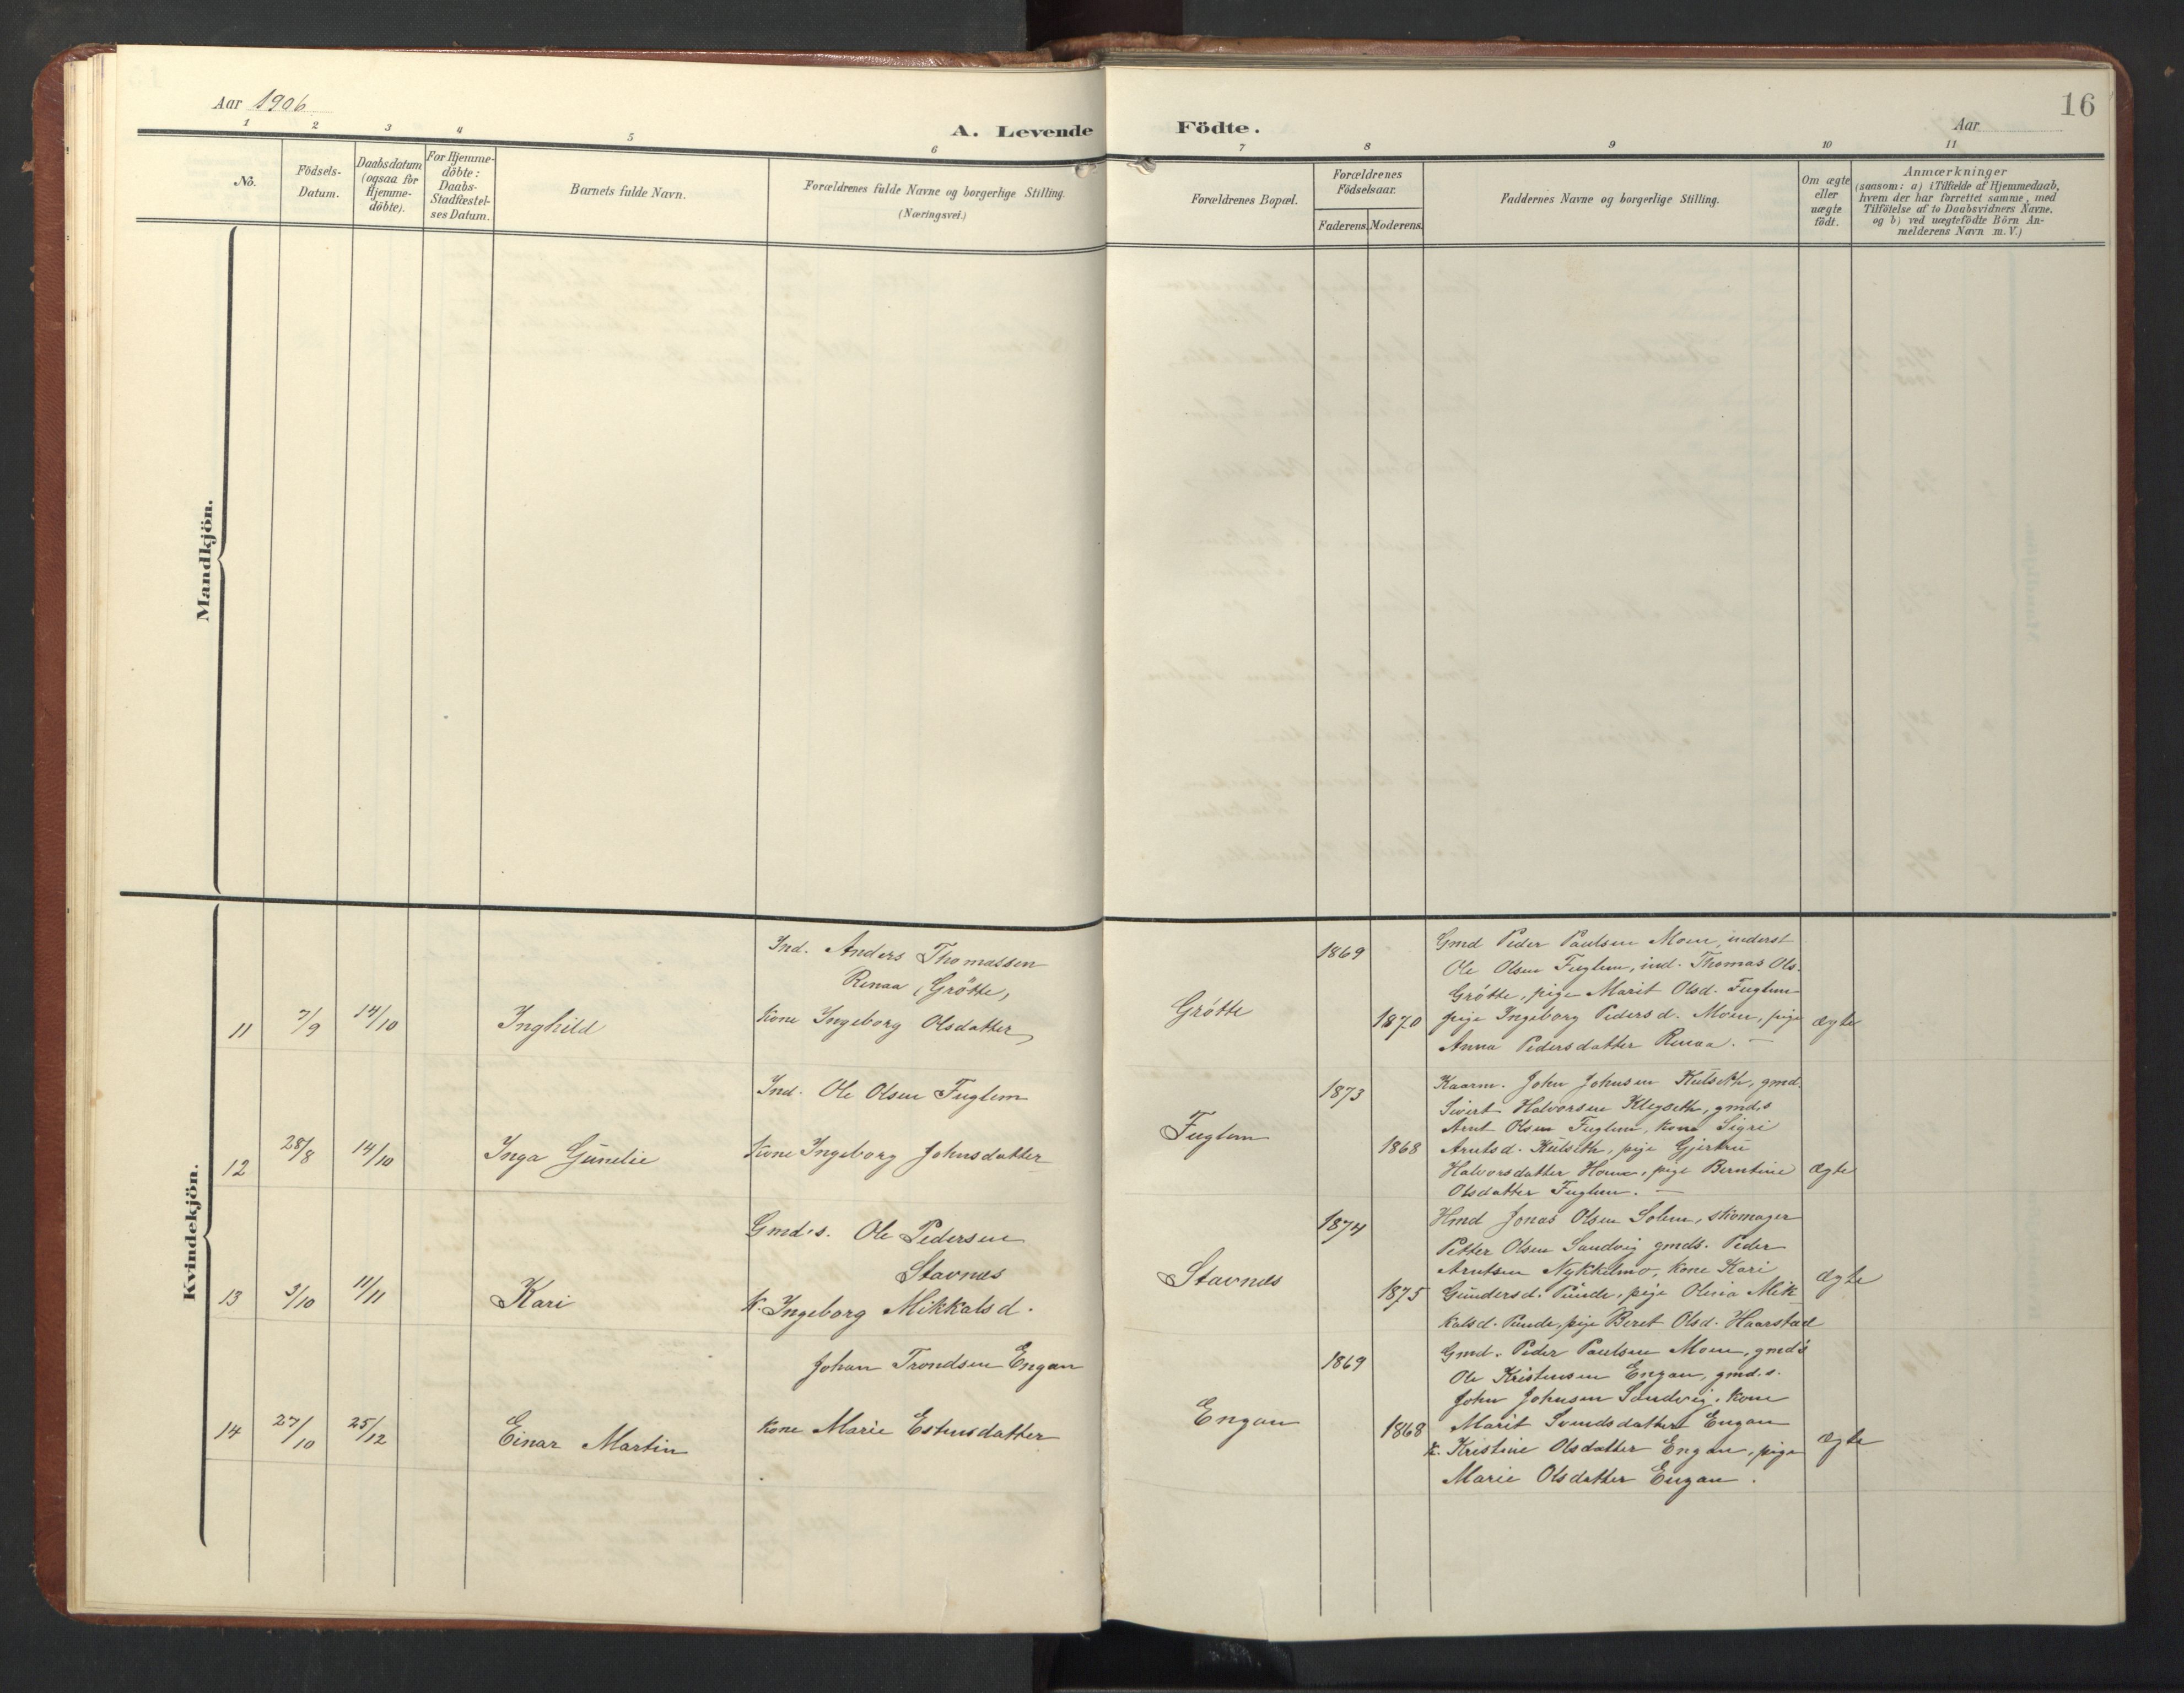 Aar 1906
16
A. Levende Födte.
Aar
1 2 3 4 5 6 7 8 9 10 11
No.
Födsels-
Datum.
Daabsdatum
(ogsaa for
Hjemme-
döbte).
For Hjemme-
döbte:
Daabs-
Stadfæstel-
ses Datum.
Barnets fulde Navn.
Forældrenes fulde Navne og borgerlige Stilling.
(Næringsvei.)
Forældrenes Bopæl.
Forældrenes
Födselsaar.
Faderens. Moderens.
Faddernes Navne og borgerlige Stilling.
Om ægte
eller
uægte
födt.
Anmærkninger
(saasom: a) i Tilfælde af Hjemmedaab,
hvem der har forrettet samme, med
Tilföielse af to Daabsvidners Navne,
og b) ved uægtefödte Börn An-
melderens Navn m. V.)
Mandkjön.
Kvindekjön.
11 7/9 14/10 Inghild
Ind. Anders Thomassen
Renaa (Grötte,
Kone Ingeborg Olsdatter
Grötte
1869
1870
Gmd Peder Paulsen Moen, inderst
Ole Olsen Fuglem, ind. Thomas Ols.
Grötte, pige Marit Olsd. Fuglem
pige Ingeborg Pedersd. Moen, pige
Anna Pedersdatter Renaa. —
ægte
12 28/8 14/10 Inga Gunelie
Ind. Ole Olsen Fuglem
Kone Ingeborg Johnsdatter
Fuglem
1873
1868
Kaarm. John Johnsen Kulseth, gmd.
Sivert Halvorsen Klegseth, gmd,s
Arnt Olsen Fuglem, Kone Sigri
Arntsd. Kulseth, pige Gjertru
Halvorsdatter , pige Berntine
Olsdatter Fuglem. —
ægte
13 3/10 11/11 Kari
Gmd's. Ole Pedersen
Stavnes
K. Ingeborg Mikkalsd.
Stavnes
1874
1875
Hmd Jonas Olsen Solem, skomager
Petter Olsen Sandvig gmds. Peder
Arntsen Nykkelmo, Kone Kari
Gundersd. Runde, pige Olina Mik
kalsd. Runde, pige Beret Olsd. Haarstad
ægte
14 27/10 25/12 Einar Martin
Johan Trondsen Engan
Kone Marie Estensdatter
Engan
1869
1868
Gmd. Peder Paulsen Moen, gmd's
Ole Kristensen Engan, gmd.s.
John Johnsen Sandvig. Kone
Marit Svendsdatter Engan
K. Kristine Olsdatter Engan, pige
Marie Olsdatter Engan.
ægte